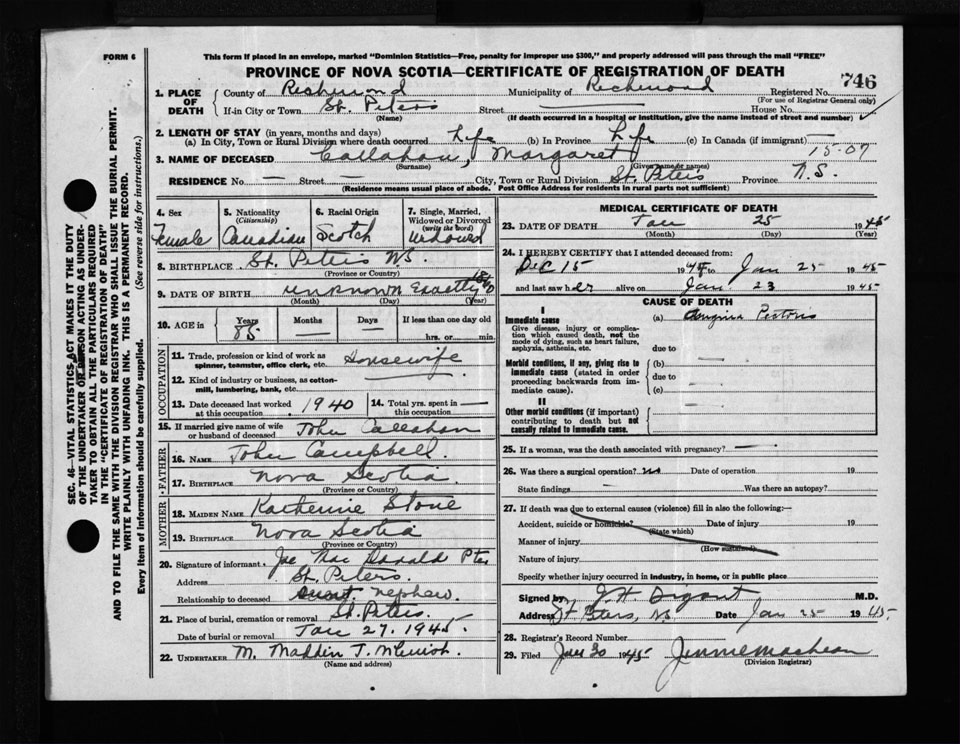 FORM 6
This form if placed in an envelope, marked "Dominion Statistics—Free, penalty for improper use $300," and properly addressed will pass through the mail "FREE"
PROVINCE OF NOVA SCOTIA—CERTIFICATE OF REGISTRATION OF DEATH
746
1. PLACE OF DEATH
County of Richmond Municipality of Richmond Registered No.
(For use of Registrar General only)
If in City or Town St. Peters Street House No.
(Name) (If death occurred in a hospital or institution, give the name instead of street and number)
2. LENGTH OF STAY (in years, months and days)
(a) In City, Town or Rural Division where death occurred Life (b) In Province Life (c) In Canada (if immigrant) —
15-07
3. NAME OF DECEASED Callahan, Margaret
(Surname) (Given name or names)
RESIDENCE No. — Street — City, Town or Rural Division St. Peters Province N.S.
(Residence means usual place of abode. Post Office Address for residents in rural parts not sufficient)
4. Sex
Female
5. Nationality
(Citizenship)
Canadian
6. Racial Origin
Scotch
7. Single, Married, Widowed or Divorced
(write the word)
Widowed
8. BIRTHPLACE St. Peters NS.
(Province or Country)
9. DATE OF BIRTH unknown Exactly 1860
(Month) (Day) (Year)
10. AGE in
Years
85
Months
—
Days
—
If less than one day old
hrs. or min.
OCCUPATION
11. Trade, profession or kind of work as
spinner, teamster, office clerk, etc. Housewife
12. Kind of industry or business, as cotton-
mill, lumbering, bank, etc.
13. Date deceased last worked
at this occupation 1940
14. Total yrs. spent in
this occupation —
15. If married give name of wife
or husband of deceased John Callahan
FATHER
16. NAME John Campbell.
17. BIRTHPLACE Nova Scotia
(Province or Country)
MOTHER
18. MAIDEN NAME Katherine Stone
19. BIRTHPLACE Nova Scotia
(Province or Country)
20. Signature of informant Joe Mac Donald Pte
Address St. Peters.
Relationship to deceased nephew.
21. Place of burial, cremation or removal St. Peters.
Date of burial or removal Jan 27. 1945
22. UNDERTAKER M. Madden
(Name and address)
MEDICAL CERTIFICATE OF DEATH
23. DATE OF DEATH Jan 25 1945
(Month) (Day) (Year)
24. I HEREBY CERTIFY that I attended deceased from:
Dec 15 1945 to Jan 25 1945
and last saw her alive on Jan 23 1945
CAUSE OF DEATH
I
Immediate cause
Give disease, injury or complica-
tion which caused death, not the
mode of dying, such as heart failure,
asphyxia, asthenia, etc.
(a) Angina Pectoris
due to
Morbid conditions, if any, giving rise to
immediate cause (stated in order
proceeding backwards from im-
mediate cause).
(b) —
due to
(c) —
II
Other morbid conditions (if important)
contributing to death but not
causally related to immediate cause.
25. If a woman, was the death associated with pregnancy? —
26. Was there a surgical operation? no Date of operation 19
State findings — Was there an autopsy?
27. If death was due to external causes (violence) fill in also the following:—
Accident, suicide or homicide? Date of injury 19
(State which)
Manner of injury
(How sustained)
Nature of injury
Specify whether injury occurred in industry, in home, or in public place
Signed by J. H. Digout M.D.
Address St Peters, NS Date Jan 25 1945
28. Registrar's Record Number
29. Filed Jan 30 1945 Jennie MacLean
(Division Registrar)
SEC. 46—VITAL STATISTICS ACT MAKES IT THE DUTY
OF THE UNDERTAKER OR PERSON ACTING AS UNDER-
TAKER TO OBTAIN ALL THE PARTICULARS REQUIRED
IN THE "CERTIFICATE OF REGISTRATION OF DEATH"
AND TO FILE THE SAME WITH THE DIVISION REGISTRAR WHO SHALL ISSUE THE BURIAL PERMIT.
WRITE PLAINLY WITH UNFADING INK. THIS IS A PERMANENT RECORD.
Every item of information should be carefully supplied. (See reverse side for instructions.)